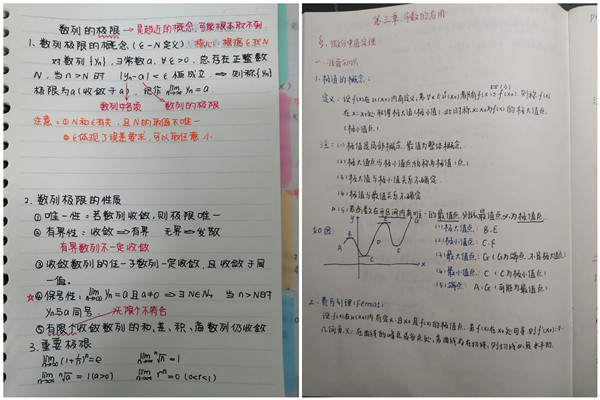 数列的极限 → 是趋近的概念,可能根本取不到
1. 数列极限的概念 (ε-N定义) 核心:根据ε找N
对数列{yn}, ∃常数a, ∀ε>0, 总存在正整数
N, 当n>N时 |yn-a|<ε 恒成立 ⇒ 则称{yn}
极限为a(收敛于a) 记作 lim n→∞ yn=a
数列中各项 数列的极限
注意: ①N和ε有关, 且N的取值不唯一
②ε体现了误差要求, 可以取任意小
2. 数列极限的性质
①唯一性:若数列收敛,则极限唯一
②有界性:收敛⇒有界 无界⇒发散
有界数列不一定收敛
③收敛数列的任一子数列一定收敛,且收敛于同
一值。
☆④保号性: lim n→∞ yn=a且a≠0 ⇒∃N∈N+ 当n>N时
yn与a同号
无限个不符合
⑤有限个收敛数列的和、差、积、商数列仍收敛
3. 重要极限
lim n→∞ (1+1/n)^n=e lim n→∞ ⁿ√n=1
lim n→∞ ⁿ√a=1(a>0) lim n→∞ r^n=0 (0<r<1)
第三章 导数的应用
微分中值定理
一.
1. 极值的概念:
定义: 设f(x)在u(x0)内有定义,若∀x∈ů(x0)都有f(x)≤f(x0) 则称f(x)
在x=x0处取得极大值(极小值),此时称x=x0为f(x)的极大值点
(极小值点)
注: (1)极值是局部概念 最值为整体概念
(2)极大值点与极小值点统称为极值(点)
(3)极大值与极小值关系不确定
(4)极值与最值关系不确定
(5)若函数在开区间内有唯一的最值点,则此最值点必为极值点
如图: y A B C D E F G x
(1)极大值点: B.E
(2)极小值点: C.F
(3)最大值点: G (G为端点,不是极大值点)
(4)最小值点: C (C为极小值点)
(5)端点: A、G (可能为最值点)
2. 费马引理(Fermat):
设f(x)在u(x0)内有定义,且x0是f(x)的极值点,若f(x)在x0处可导,则f'(x0)=0
几何意义:在曲线的峰点或谷点处,若曲线存在切线,则切线必是水平的.